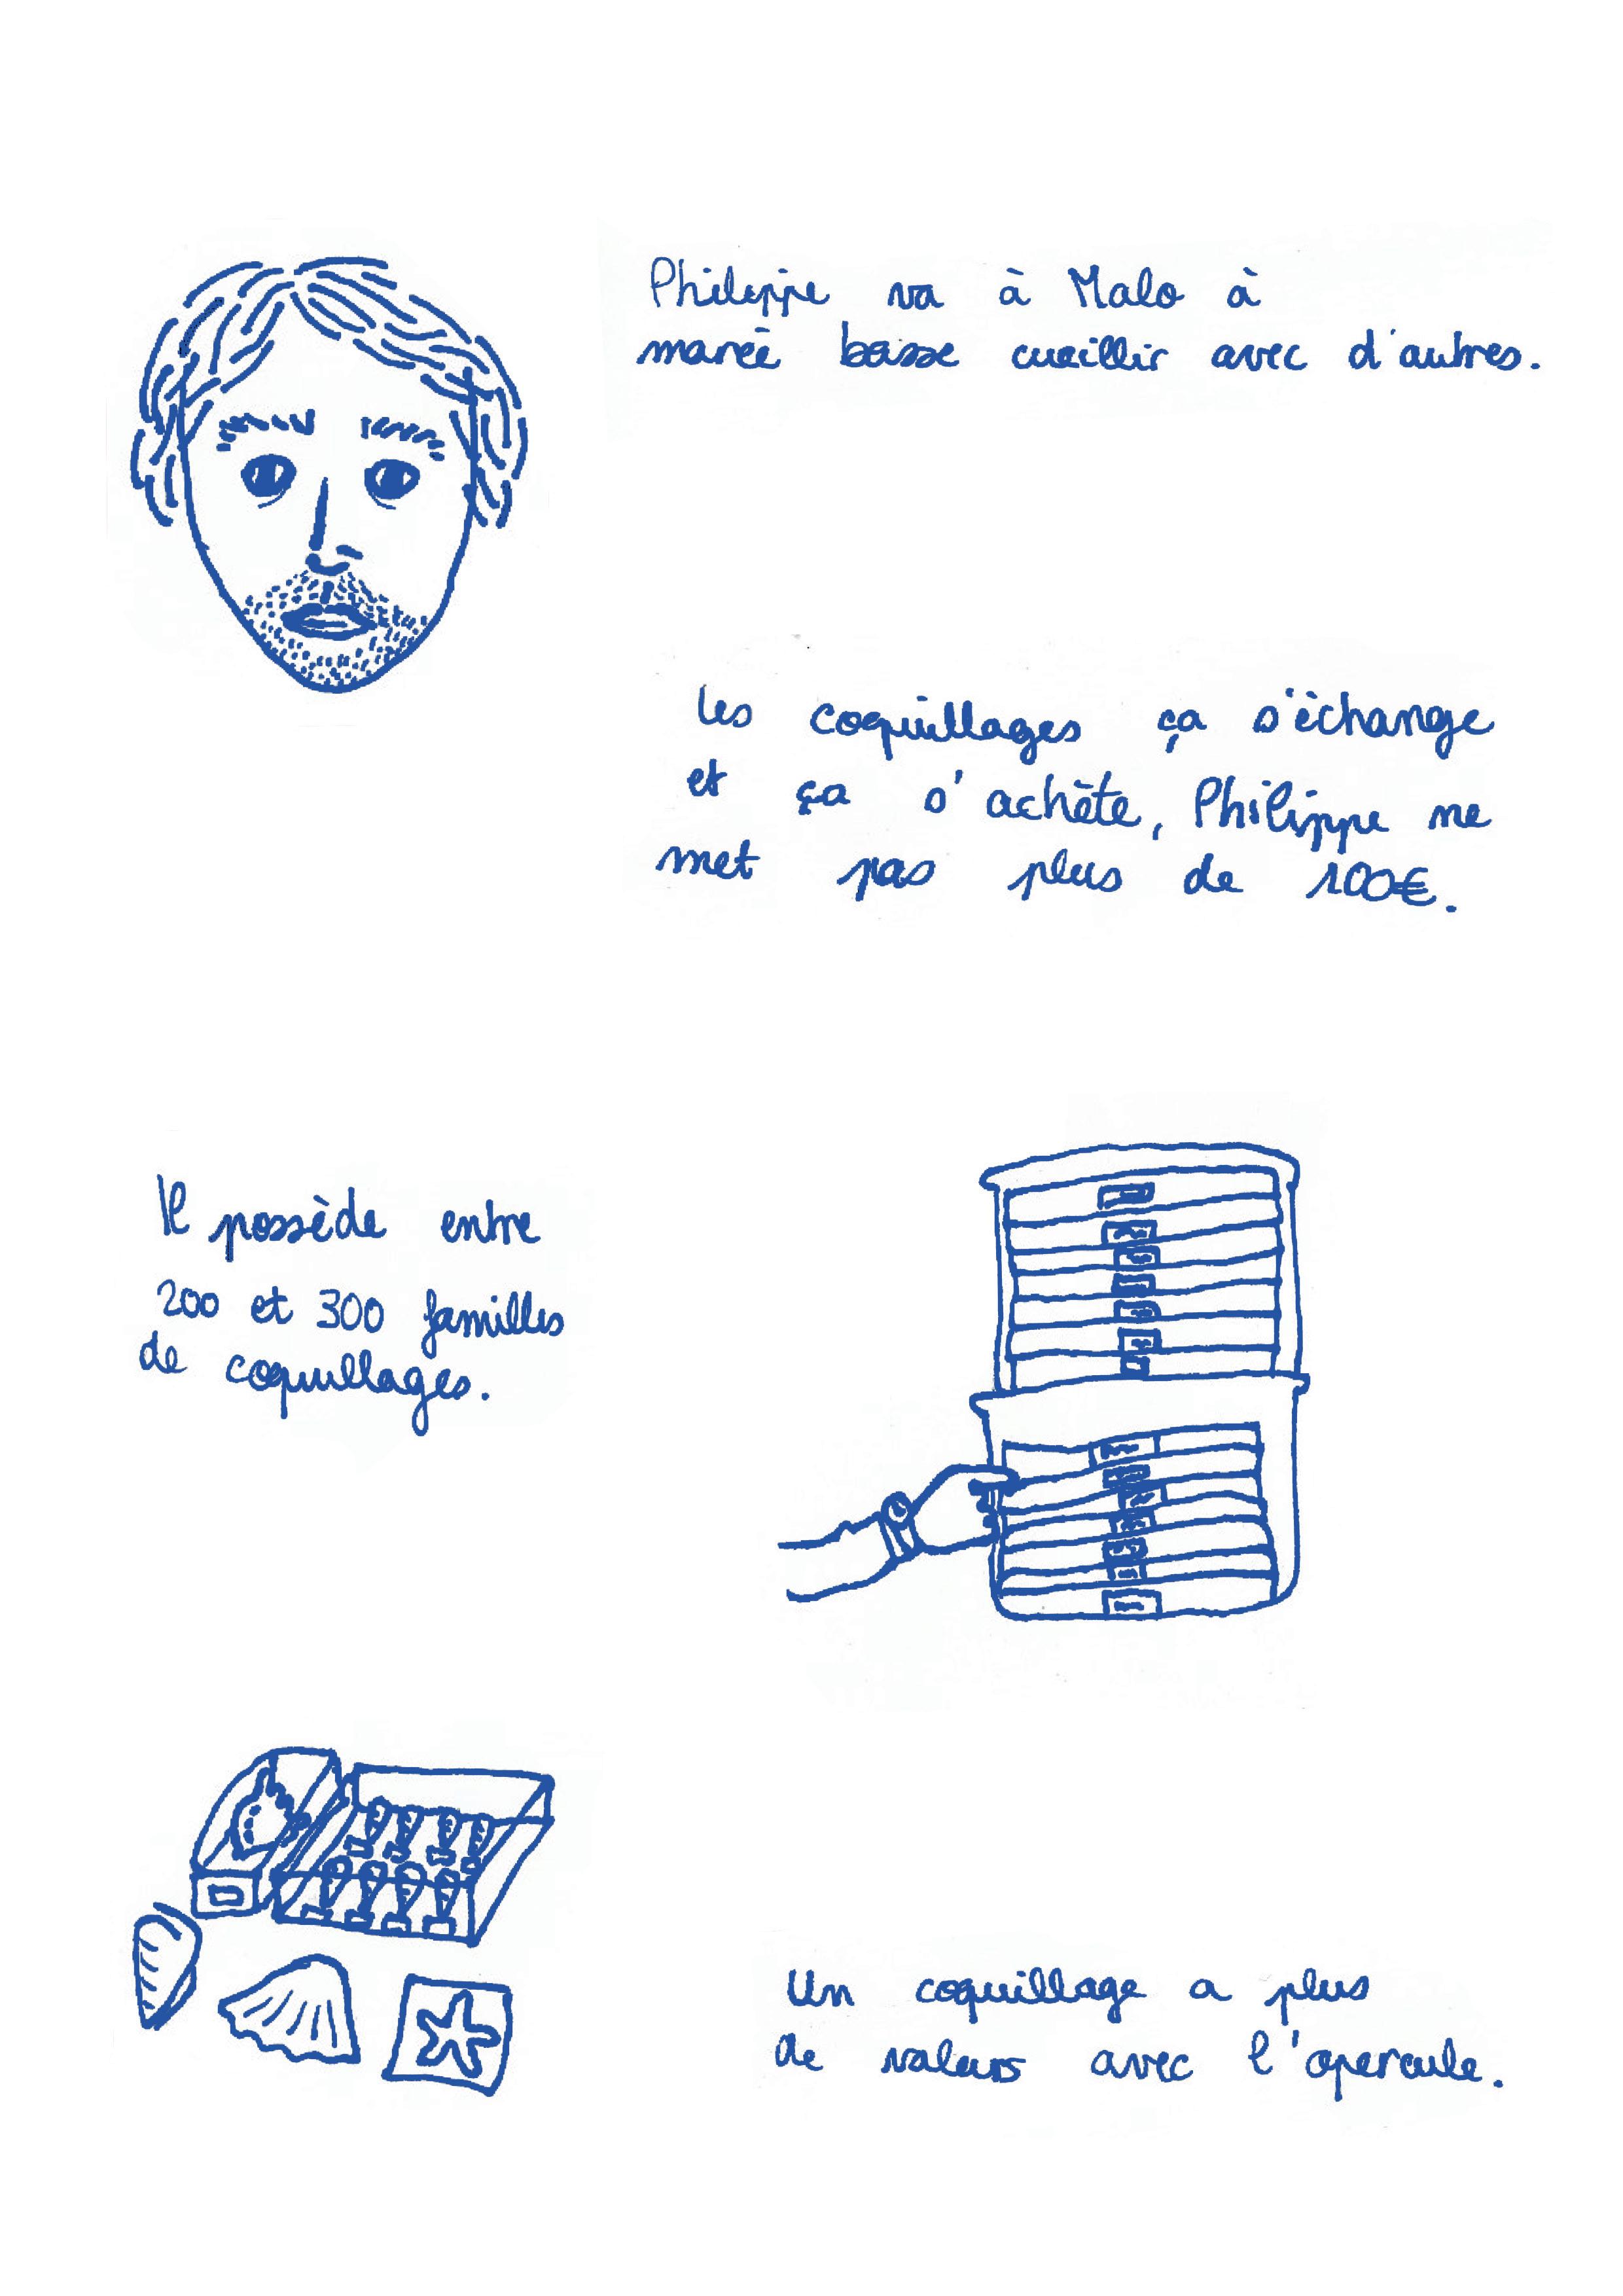 Philippe va à Malo à
marée basse cueillir avec d'autres.
Les coquillages ça s'échange
et ça s'achète, Philippe ne
met pas plus de 100€.
Il possède entre
200 et 300 familles
de coquillages.
Un coquillage a plus
de valeurs avec l'opercule.